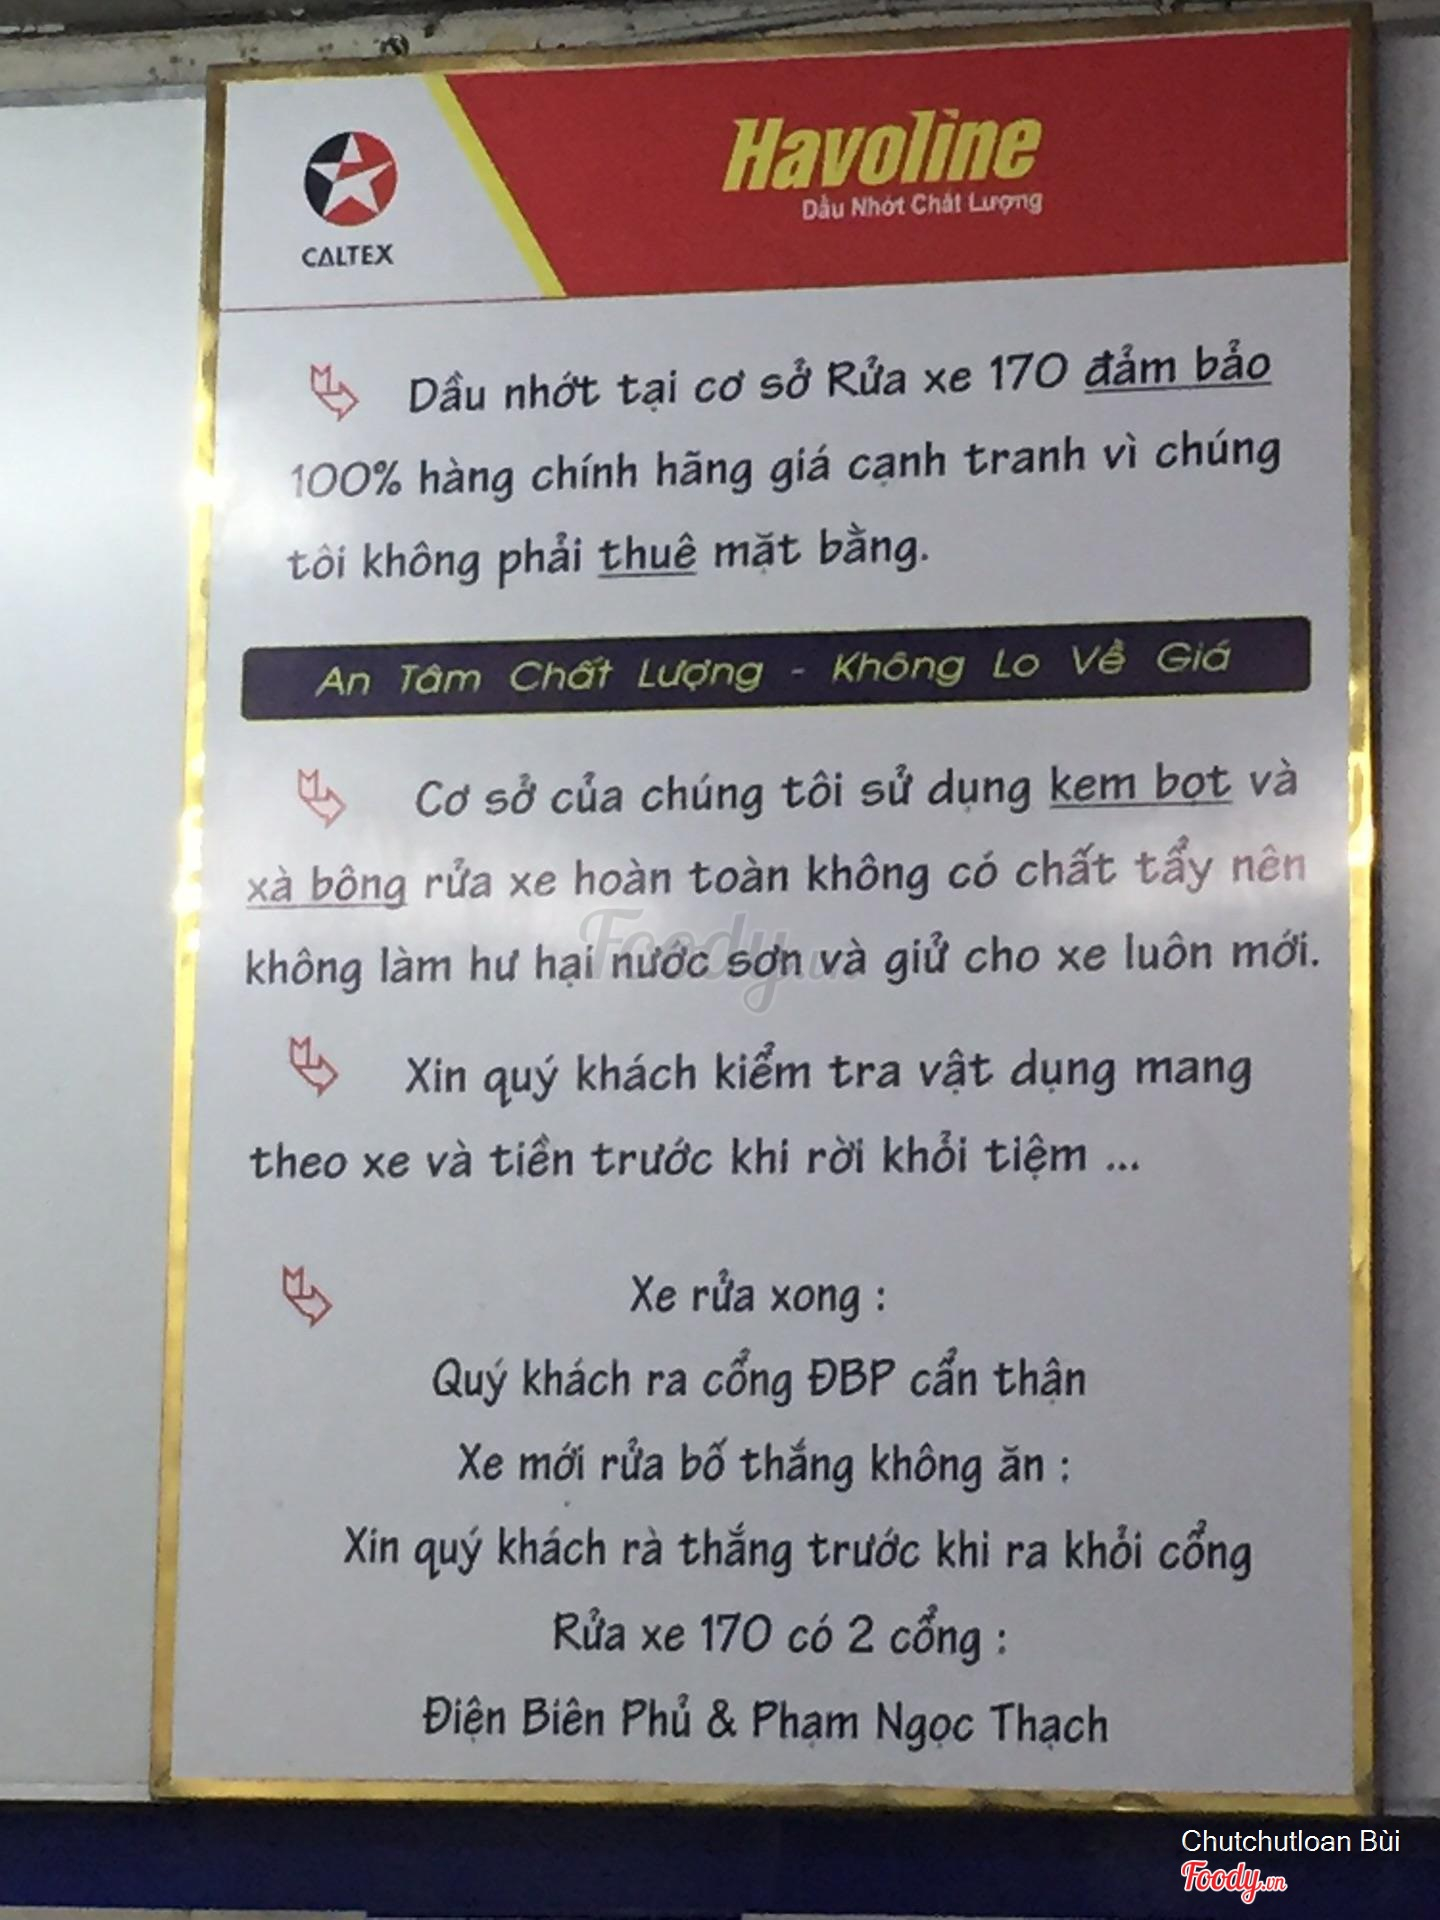 CALTEX
Havoline
Dầu Nhớt Chất Lượng
Dầu nhớt tại cơ sở Rửa xe 170 đảm bảo
100% hàng chính hãng giá cạnh tranh vì chúng
tôi không phải thuê mặt bằng.
An Tâm Chất Lượng - Không Lo Về Giá
Cơ sở của chúng tôi sử dụng kem bọt và
xà bông rửa xe hoàn toàn không có chất tẩy nên
không làm hư hại nước sơn và giử cho xe luôn mới.
Foody.vn
Xin quý khách kiểm tra vật dụng mang
theo xe và tiền trước khi rời khỏi tiệm ...
Xe rửa xong :
Quý khách ra cổng ĐBP cẩn thận
Xe mới rửa bố thắng không ăn :
Xin quý khách rà thắng trước khi ra khỏi cổng
Rửa xe 170 có 2 cổng :
Điện Biên Phủ & Phạm Ngọc Thạch
Chutchutloan Bùi
Foody.vn